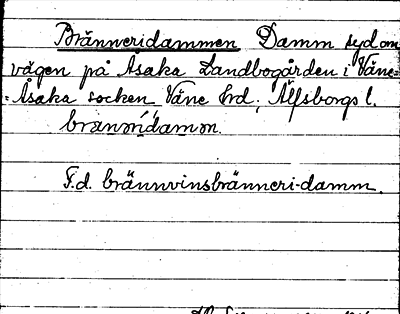 Bränneridammen Damm syd om
vägen på Åsaka Landbogården i Väne-
-Åsaka socken Väne hd, Älfsborgs l.
F.d. brännvinsbränneri-damm.